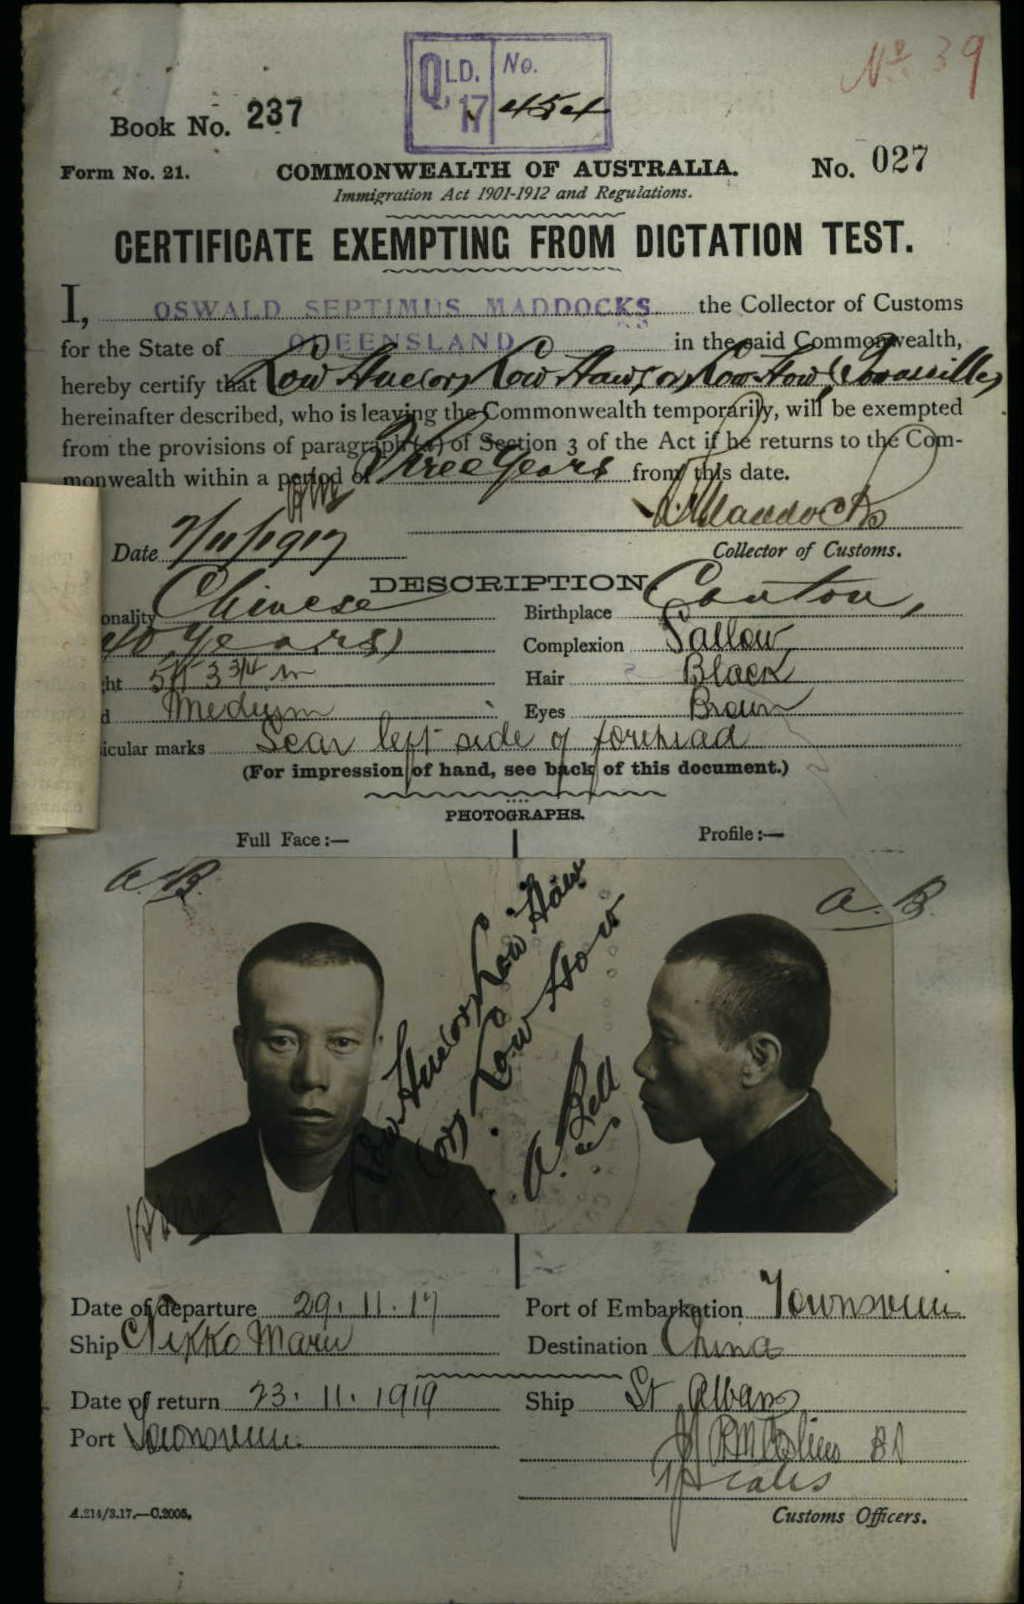 Nº 39
QLD. No.
17 454
Book No. 237
Form No. 21. COMMONWEALTH OF AUSTRALIA. No. 027
Immigration Act 1901-1912 and Regulations.
CERTIFICATE EXEMPTING FROM DICTATION TEST.
I, OSWALD SEPTIMUS MADDOCKS the Collector of Customs
for the State of QUEENSLAND in the said Commonwealth,
hereby certify that Low Hue (or) Low Haw (or) Low How (Townsville)
hereinafter described, who is leaving the Commonwealth temporarily, will be exempted
from the provisions of paragraph (a) of Section 3 of the Act if he returns to the Com-
monwealth within a period of Three Years from this date.
Maddocks
Date 7/11/1917 Collector of Customs.
DESCRIPTION
onality Chinese Birthplace Canton,
40 Years) Complexion Sallow
ht 5ft 3 3/4 in Hair Black
d Medium Eyes Brown
icular marks Scar left side of forehead
(For impression of hand, see back of this document.)
PHOTOGRAPHS.
Full Face :— Profile :—
A. B. A. B.
Low Hue (or) Low Haw
(or) Low How
A. Bell
Date of departure 29.11.17 Port of Embarkation Townsville
Ship Nikko Maru Destination China
Date of return 23.11.1919 Ship St Albans
Port Townsville
A.214/3.17.—C.2005. Customs Officers.